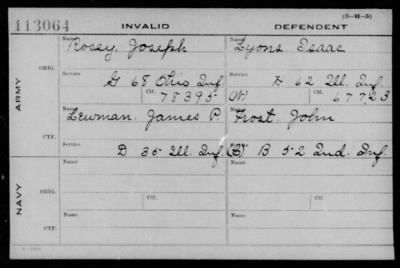 113064 INVALID DEFENDENT
(3-H-5)
Name Name
Rosey, Joseph Lyons Isaac
ORIG.
Service Service
G 68 Ohio Inf H 62 Ill. Inf
Ctf. 78395 (W) Ctf. 67723
ARMY
Name Name
James P. Frost, John
CTF.
Service Service
D 35 Ill. Inf (B) B 52 Ind. Inf.
Name Name
ORIG.
Service Ctf. Service Ctf.
NAVY
Name Name
CTF.
Service Service